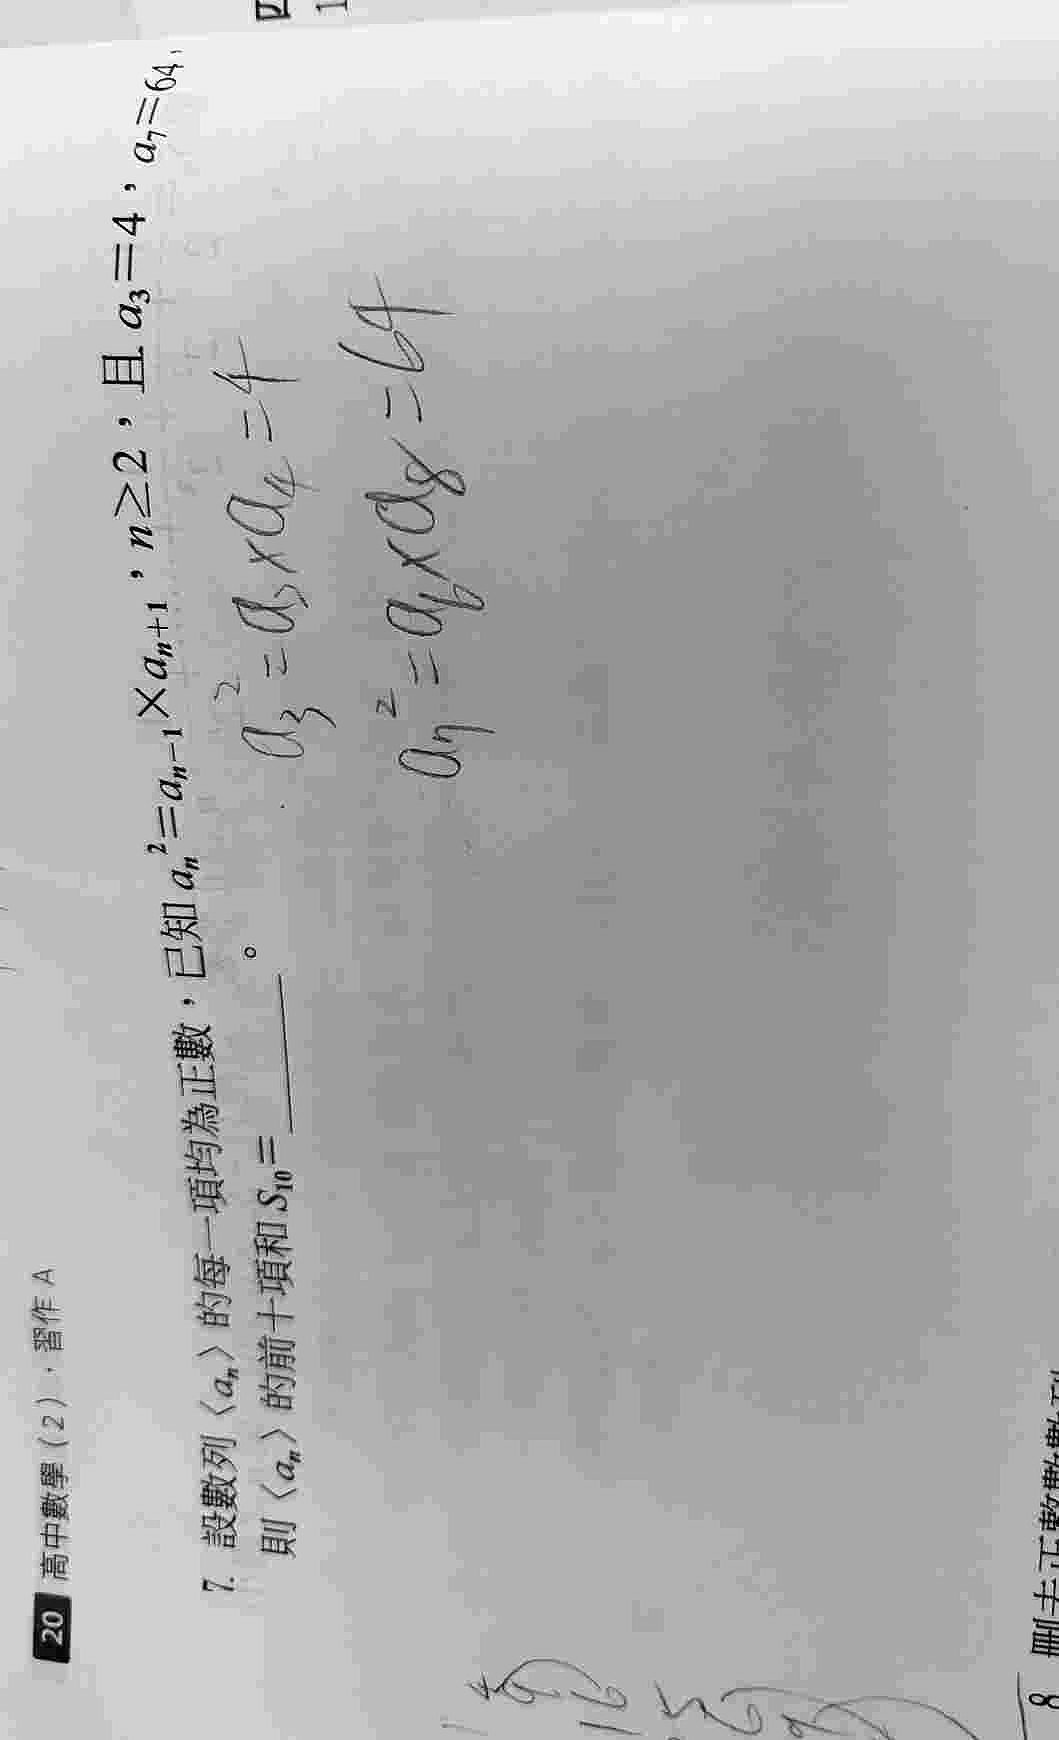 20 高中數學(2)．習作 A
7. 設數列〈aₙ〉的每一項均為正數，已知 aₙ²＝aₙ₋₁×aₙ₊₁，n≥2，且 a₃＝4，a₇＝64，
則〈aₙ〉的前十項和 S₁₀＝______。
a₃²=a₃×a₄=4
a₇²=a₆×a₈=64
8